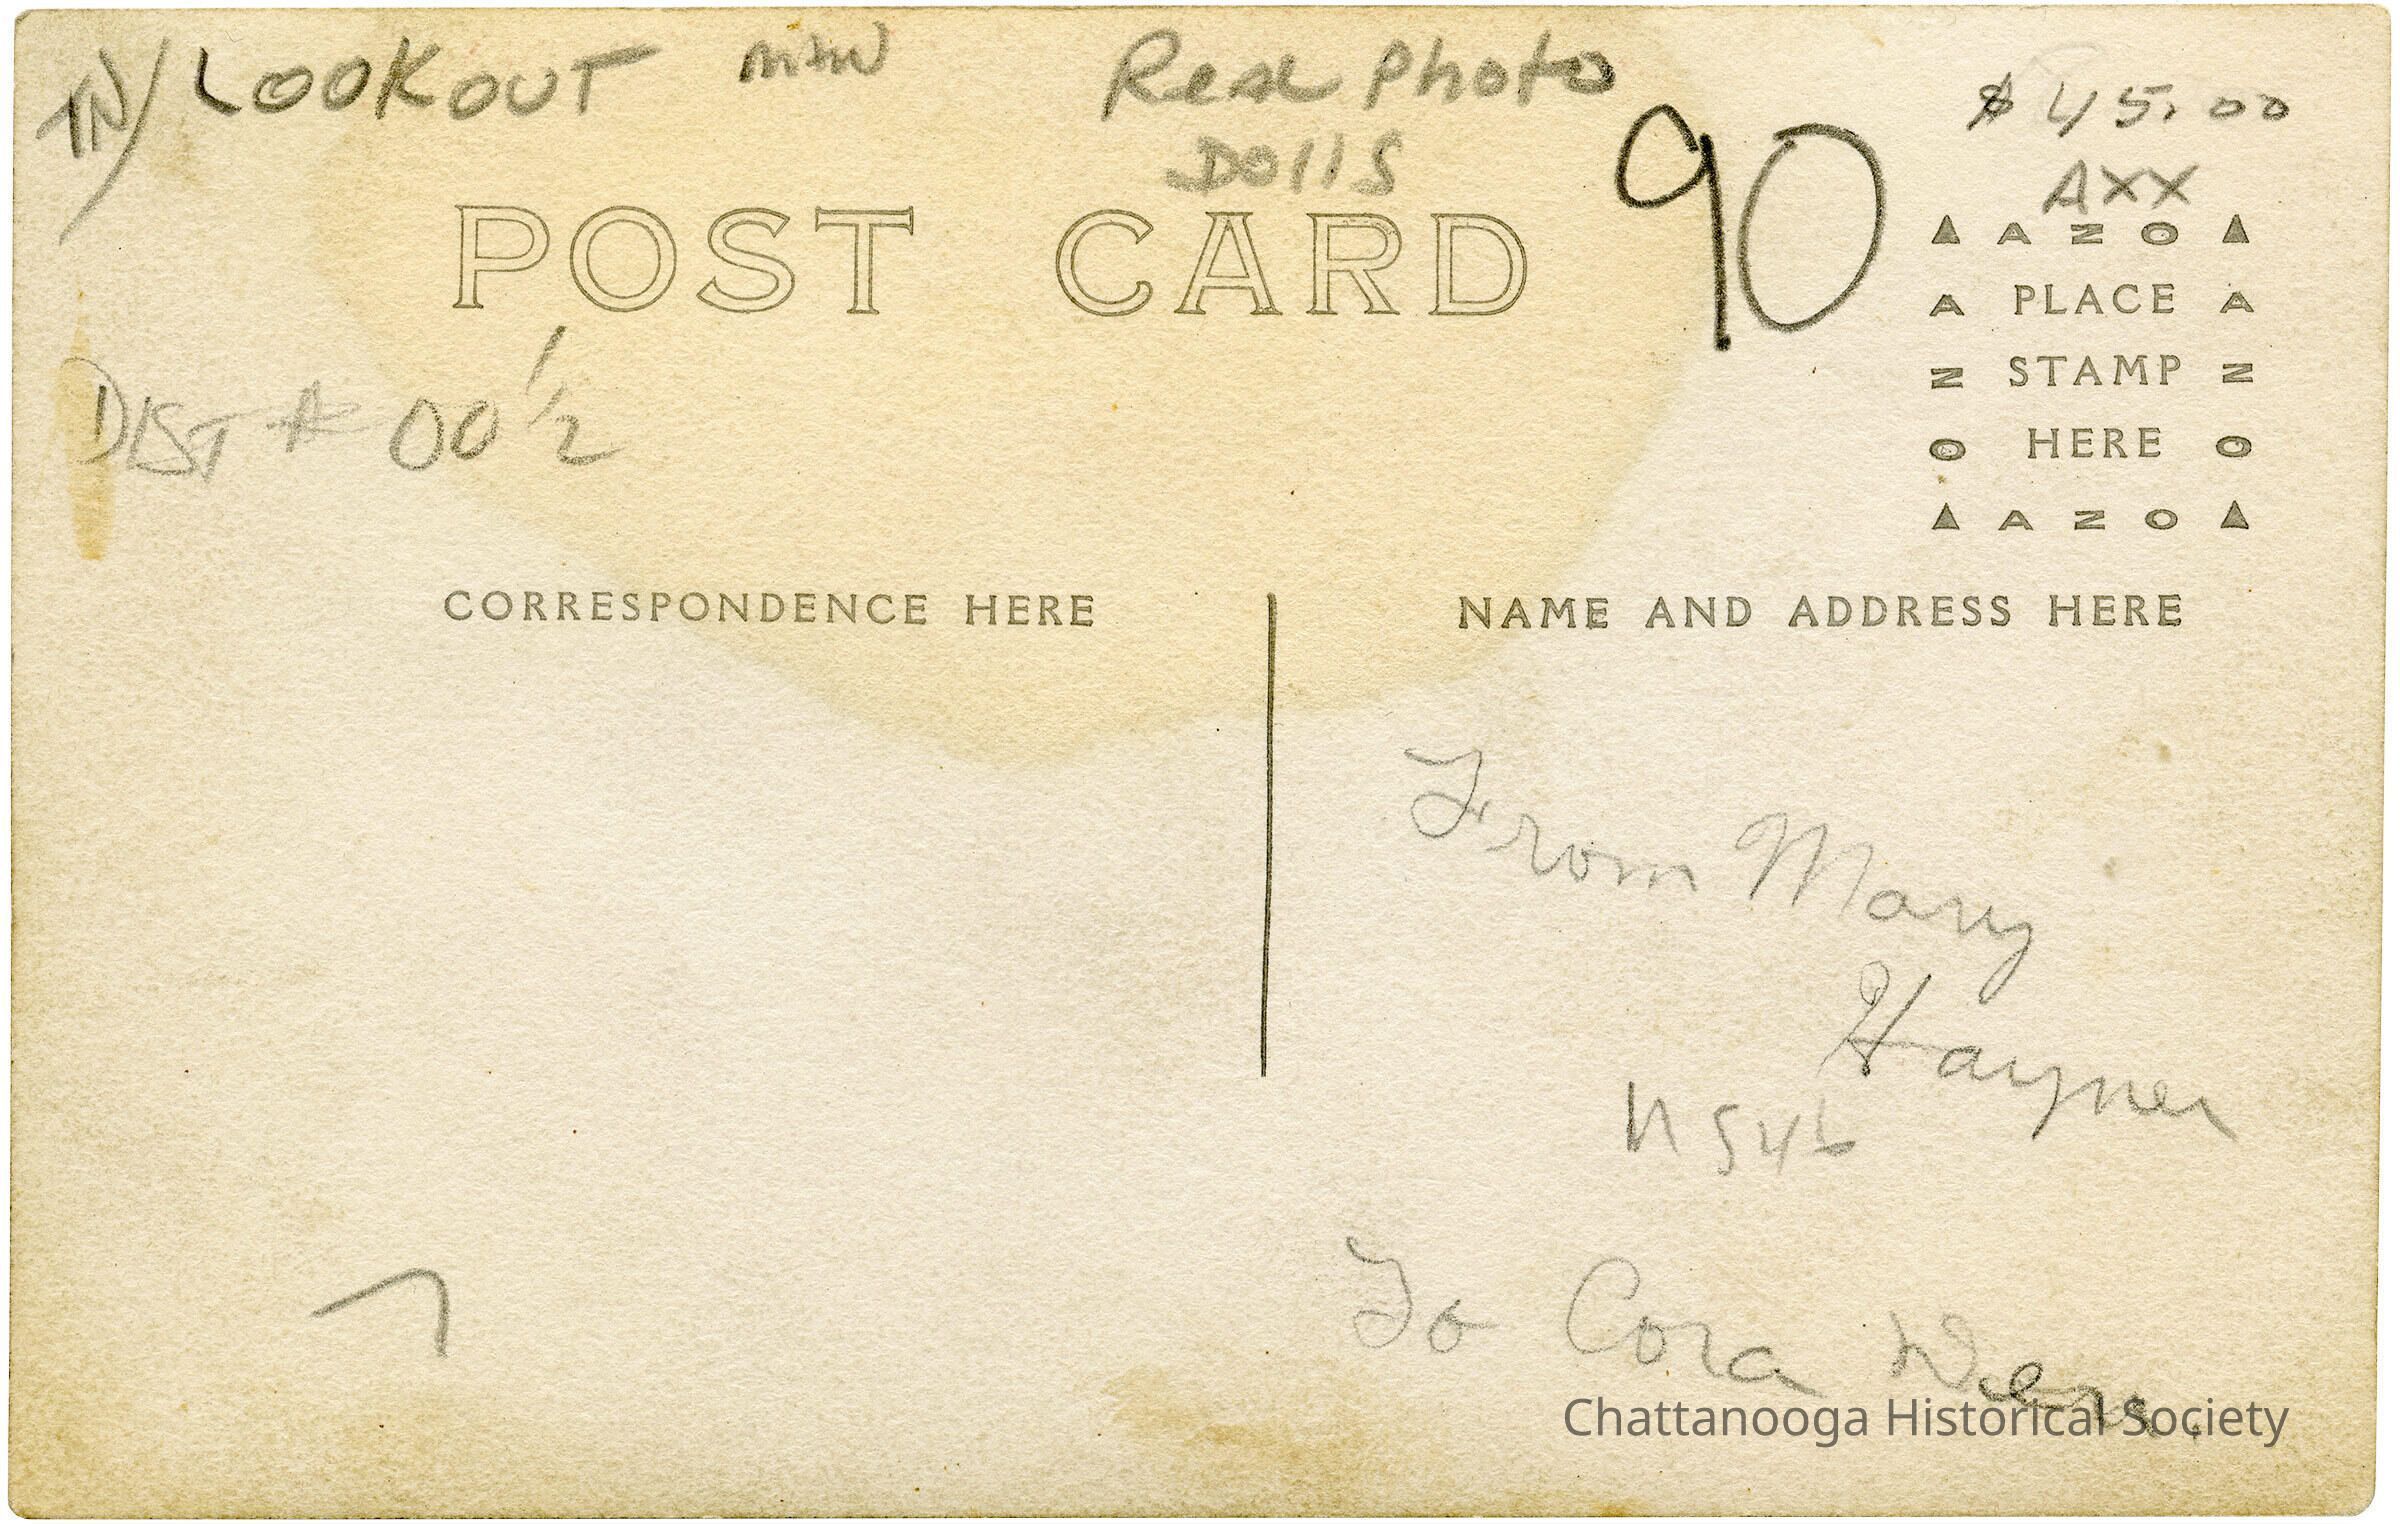 TN/ LOOKOUT Real Photo $45.00
DOllS 90 AXX
POST CARD
AZO
A PLACE A
DIST # 00 1/2
Z STAMP Z
O HERE O
AZO
CORRESPONDENCE HERE NAME AND ADDRESS HERE
From Mary
Hayner
N546
To Cora
Chattanooga Historical Society